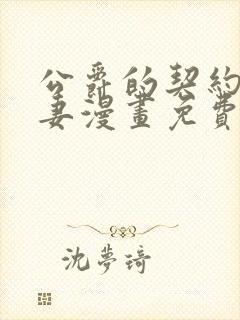 公爵的契約
妻漫畫免費
沈夢琦